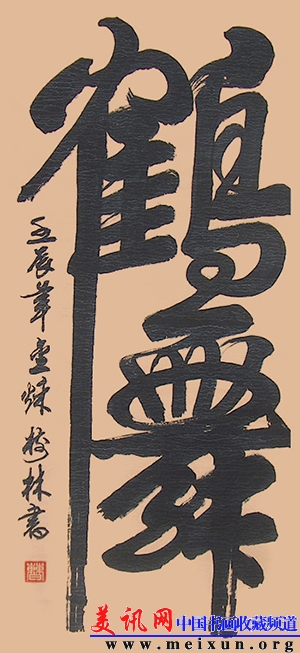 鹤舞
壬辰年 树林书
美讯网 中国书画收藏频道
www.meixun.org